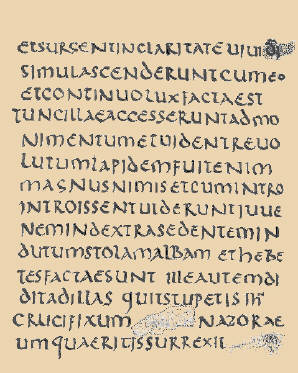 etsurgentinclaritateuiui
simulascenderuntcumeo
etcontinuoluxfactaest
tuncillaeaccesseruntadmo
nimentumetuidentreuo
lutumlapidemfuitenim
magnusnimisetcumintro
introissentuideruntiuue
nemindextrasedentemin
dutumstolamalbamethebe
tesfactaesunt illeautemdi
ditadillas quitstupetis
crucifixum nazorae
umquaeritissurrexit